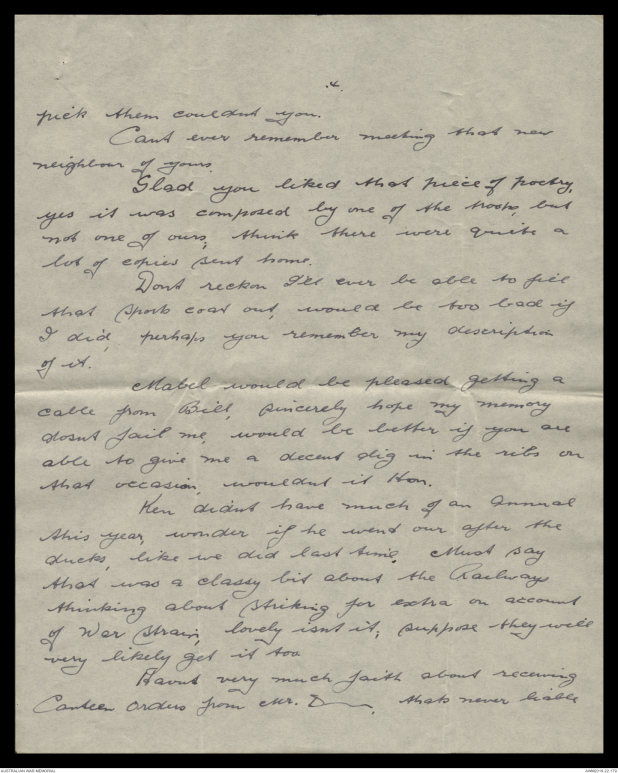 .4.
pick them couldnt you.
Cant ever remember meeting that new
neighbour of yours.
Glad you liked that piece of poetry,
yes it was composed by one of the troops, but
not one of ours, think there were quite a
lot of copies sent home.
Dont reckon I'll ever be able to fill
that sports coat out, would be too bad if
I did, perhaps you remember my description
of it.
Mabel would be pleased getting a
cable from Bill, sincerely hope my memory
dosnt fail me, would be better if you are
able to give me a decent dig in the ribs on
that occasion, wouldnt it Hon.
Ken didnt have much of an Annual
this year, wonder if he went out after the
ducks, like we did last time. Must say
that was a classy bit about the Railways
thinking about striking for extra on account
of War Strain, lovely isnt it, suppose they will
very likely get it too.
Havnt very much faith about receiving
Canteen Orders from Mr. D , thats never liable
AUSTRALIAN WAR MEMORIAL